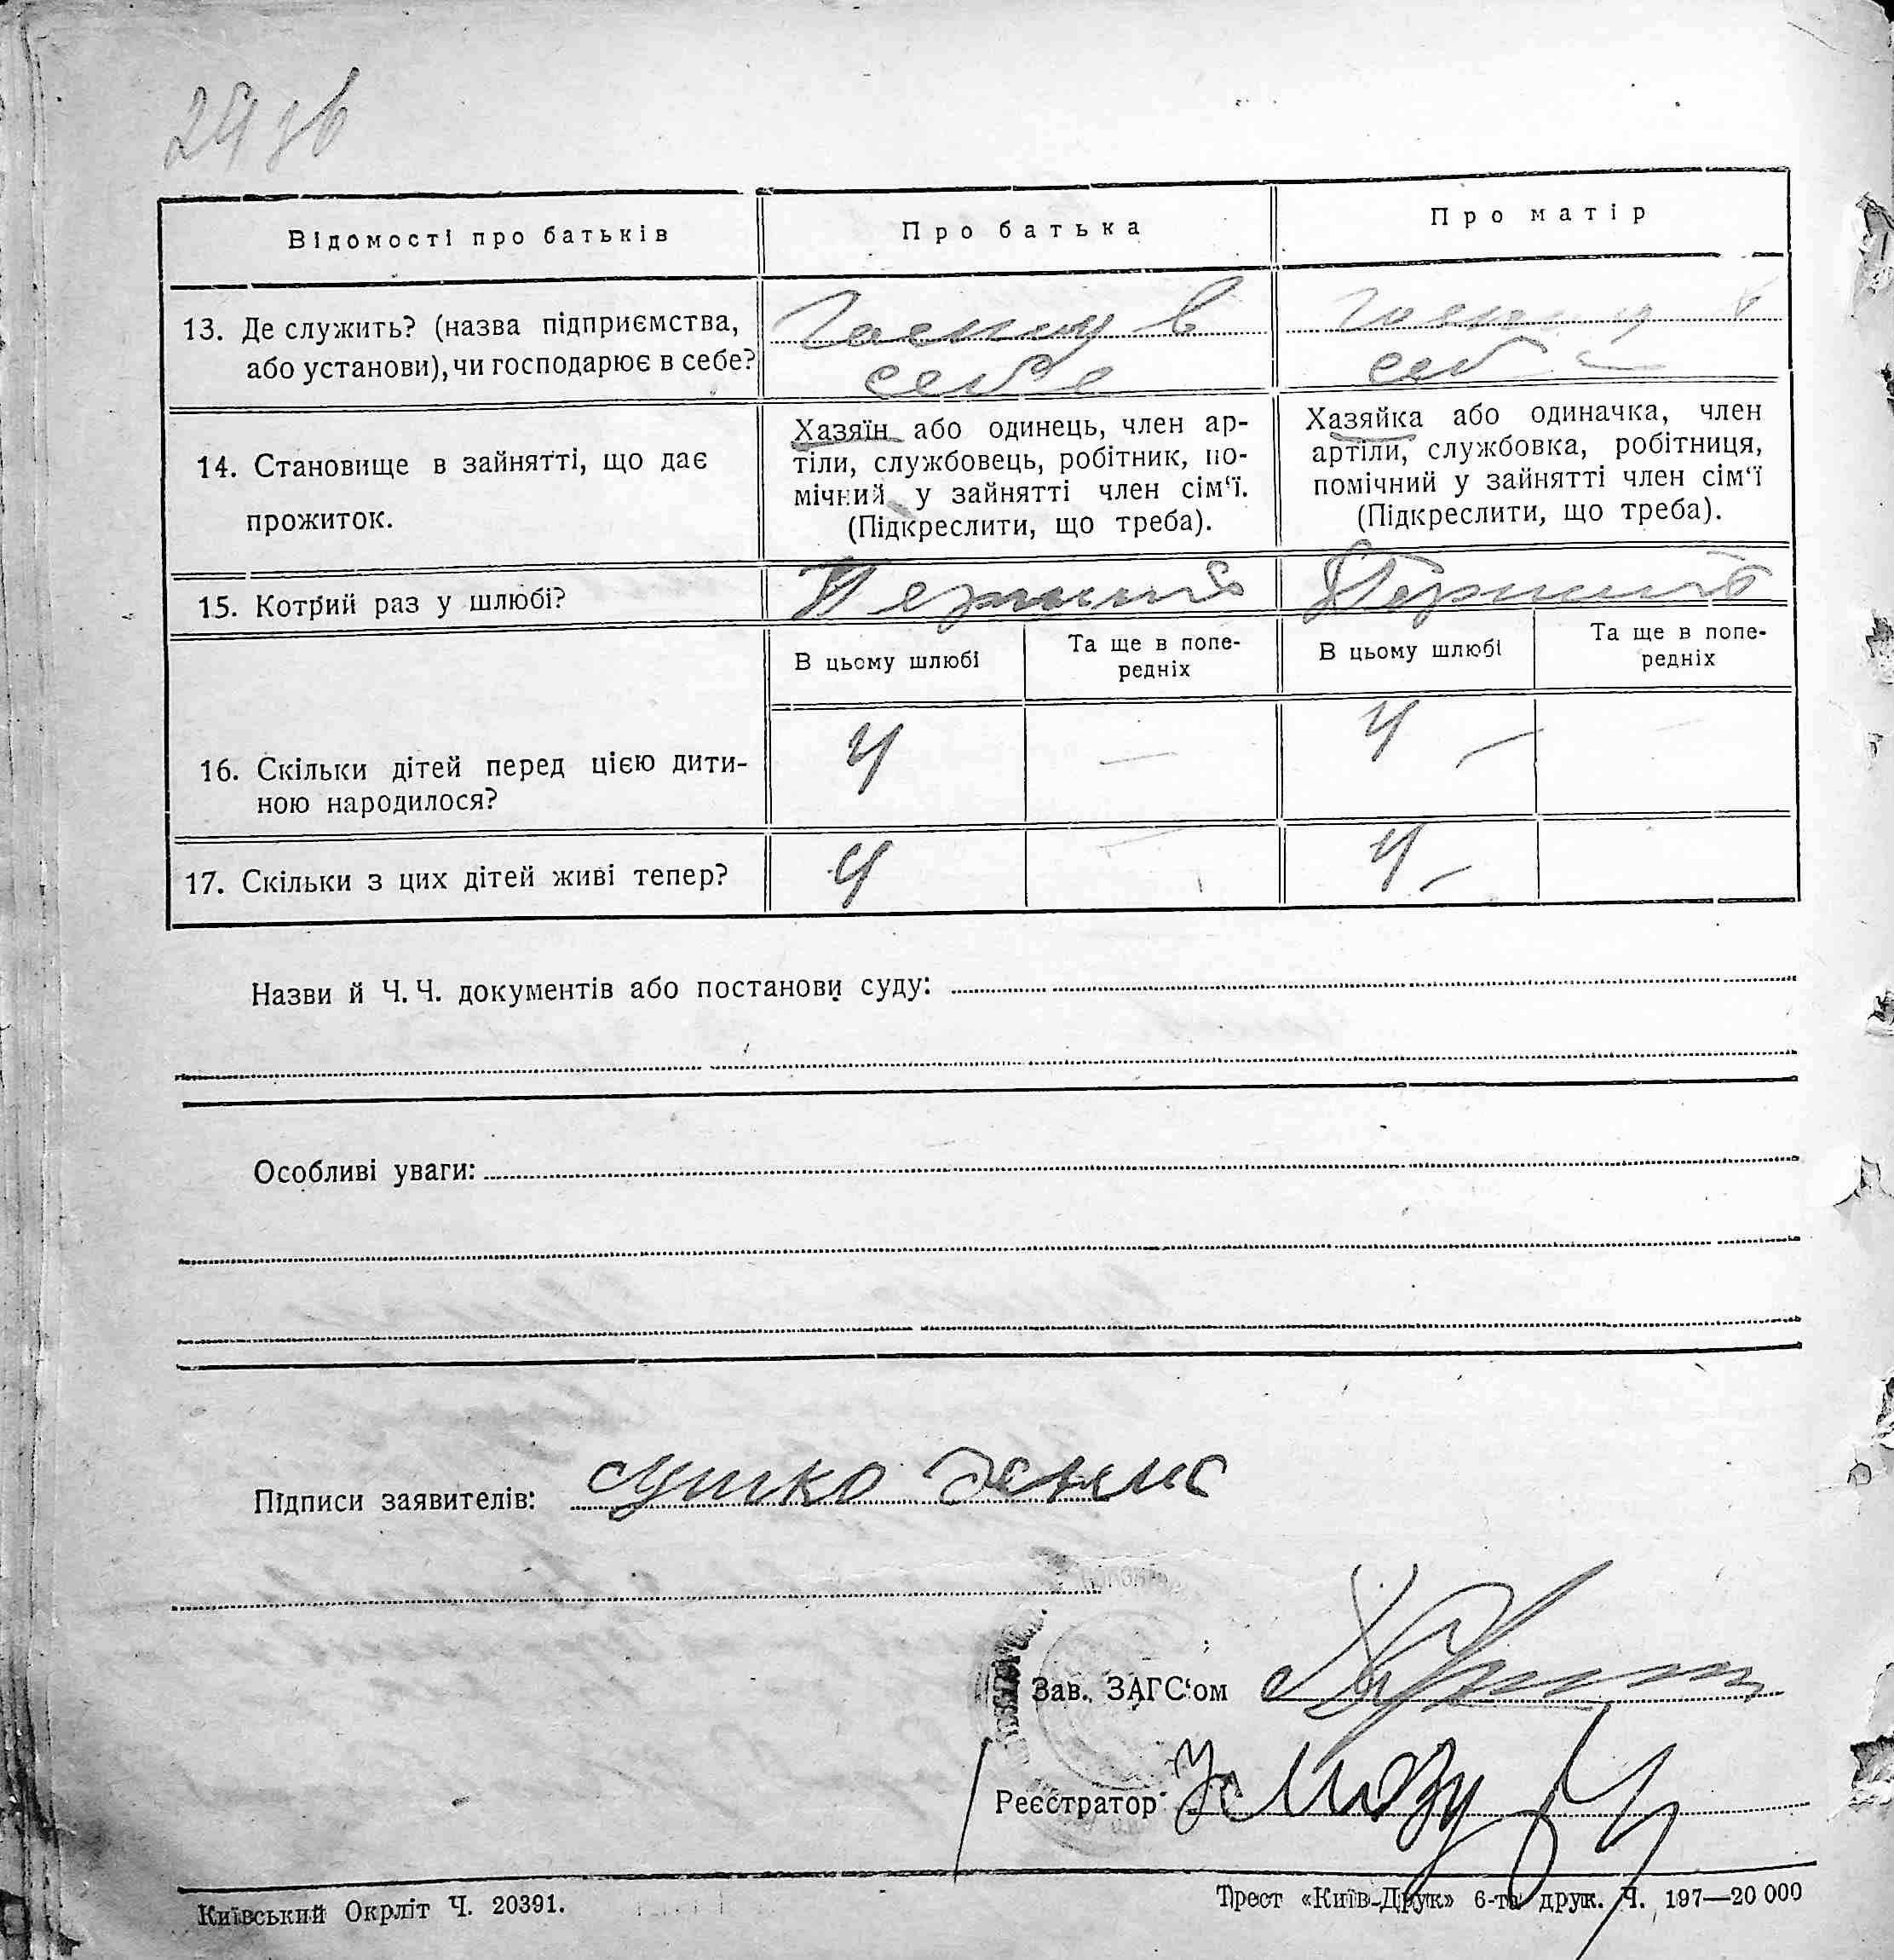 24 зв
Відомості про батьків
Про батька
Про матір
13. Де служить? (назва підприємства,
або установи), чи господарює в себе?
в
себе
в
себе
14. Становище в зайнятті, що дає
прожиток.
Хазяїн або одинець, член ар-
тіли, службовець, робітник, по-
мічний у зайнятті член сім‘ї.
(Підкреслити, що треба).
Хазяйка або одиначка, член
артіли, службовка, робітниця,
помічний у зайнятті член сім‘ї
(Підкреслити, що треба).
15. Котрий раз у шлюбі?
Перший
Перший
В цьому шлюбі
Та ще в попе-
редніх
В цьому шлюбі
Та ще в попе-
редніх
16. Скільки дітей перед цією дити-
ною народилося?
4
—
4
—
17. Скільки з цих дітей живі тепер?
4
—
4
—
Назви й Ч. Ч. документів або постанови суду:
Особливі уваги:
Підписи заявителів:
Зав. ЗАГС‘ом
Реєстратор
Київський Окрліт Ч. 20391.
Трест «Київ-Друк» 6-та друк. Ч. 197—20 000